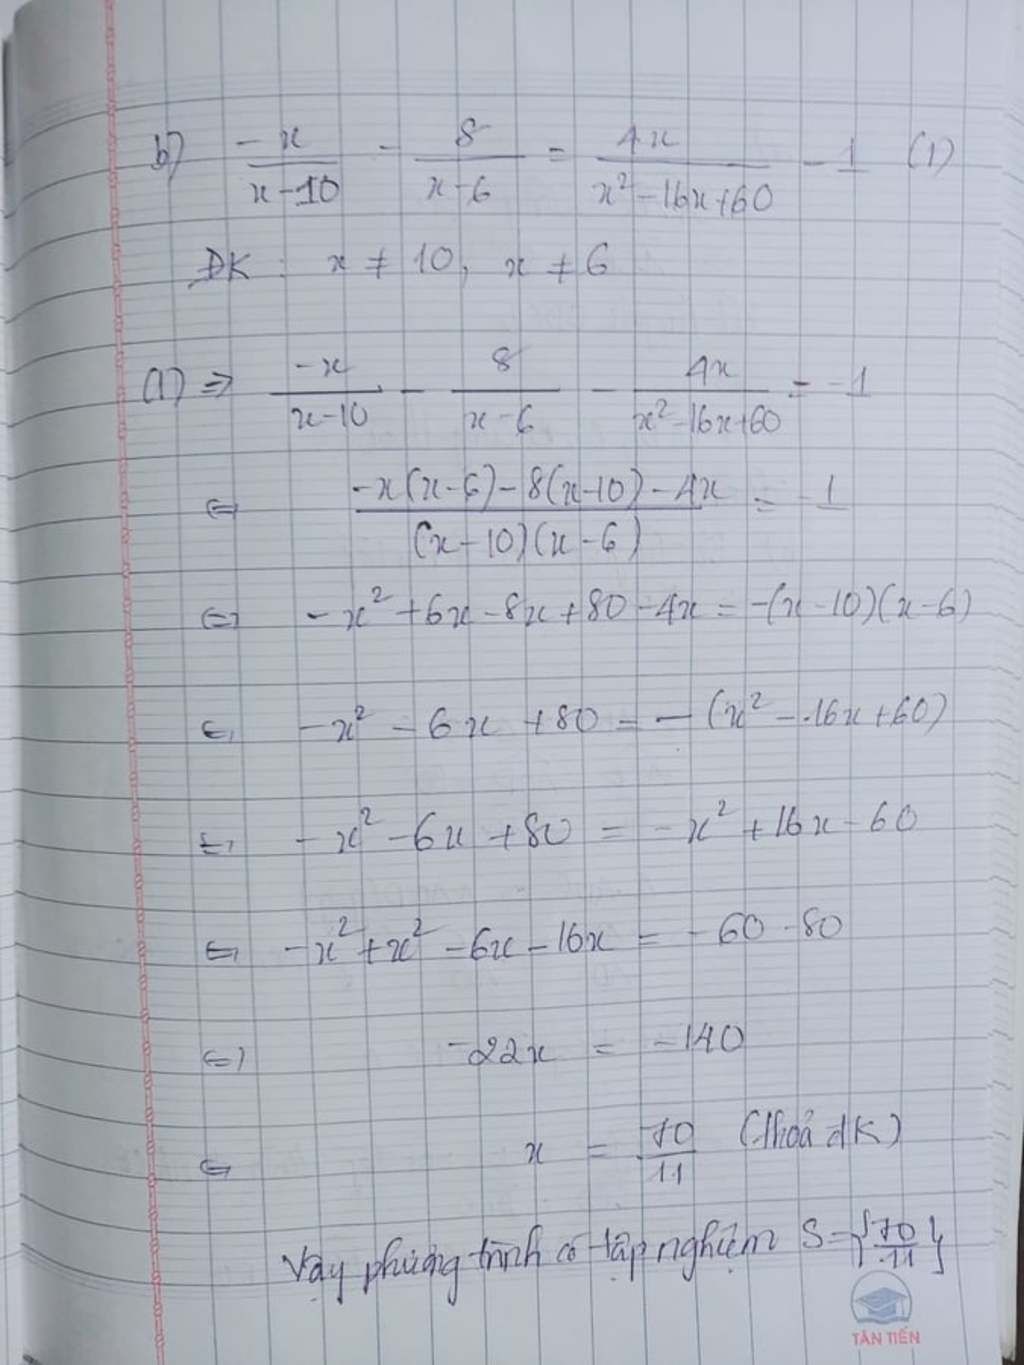 b) -x/(x-10) - 8/(x-6) = 4x/(x²-16x+60) - 1 (1)
ĐK: x ≠ 10, x ≠ 6
(1) => -x/(x-10) - 8/(x-6) - 4x/(x²-16x+60) = -1
<=> (-x(x-6)-8(x-10)-4x)/((x-10)(x-6)) = -1
<=> -x²+6x-8x+80-4x = -(x-10)(x-6)
<=> -x²-6x+80 = -(x²-16x+60)
<=> -x²-6x+80 = -x²+16x-60
<=> -x²+x²-6x-16x = -60-80
<=> -22x = -140
<=> x = 70/11 (thoả đK)
Vậy phương trình có tập nghiệm S={70/11}
TÂN TIẾN